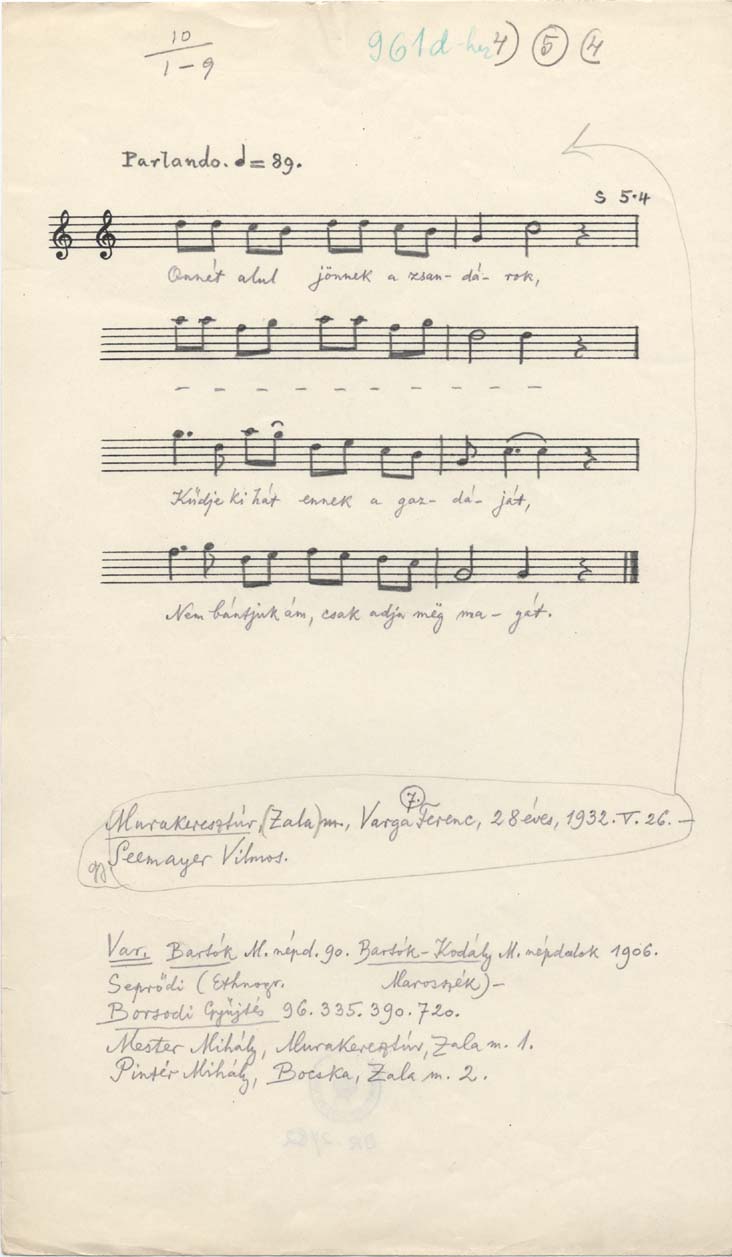 10
1-9
961d-hez 4) 5 4
Parlando. = 89.
S 5·4
Onnét alul jönnek a zsan- dá- rok,
- - - - - - - - - -
Küdje ki hát ennek a gaz- dá- ját,
Nem bántjuk ám, csak adja még ma- gát.
7.
Murakeresztúr, (Zala) m., Varga Ferenc, 28 éves, 1932. V. 26. –
gy. Seemayer Vilmos.
Var. Bartók M. népd. 90. Bartók-Kodály M. népdalok 1906.
Seprődi (Ethnogr. Marosszék) –
Borsodi Gyűjtés 96. 335. 390. 720.
Mester Mihály, Murakeresztúr, Zala m. 1.
Pintér Mihály, Bocska, Zala m. 2.